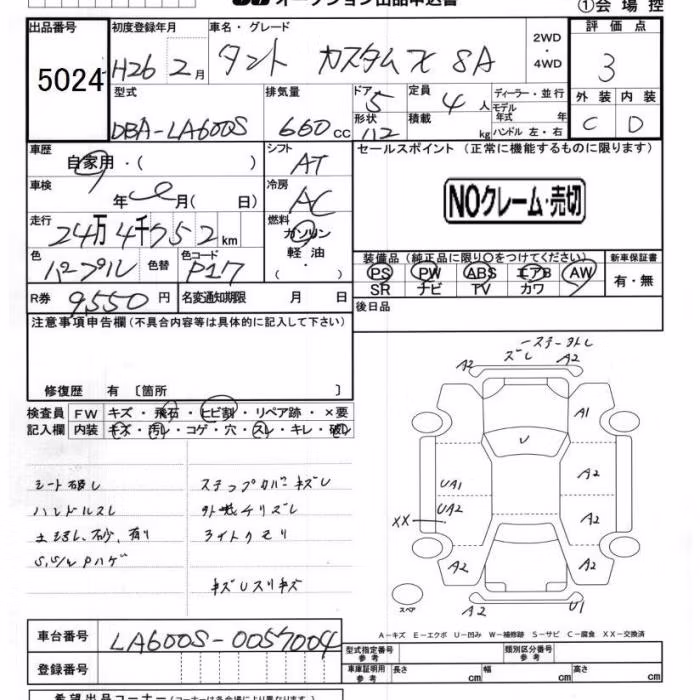 オークション出品申込書
①会場控
出品番号 初度登録年月 車名・グレード 2WD・4WD 評価点
5024 H26 2月 タント カスタム X SA 3
型式 排気量 ドア 5 定員 4人 ディーラー・並行 外装 内装
モデル年式 年
DBA-LA600S 660cc 形状 積載 kg ハンドル 左・右 C D
車歴 シフト セールスポイント (正常に機能するものに限ります)
自家用・( ) AT
車検 冷房
年 月( 日) AC NOクレーム・売切
走行 燃料
24万4千752km ガソリン
軽油
( ・ )
色 色替 色コード 装備品 (純正品に限り○をつけてください) 新車保証書
パープル P17 PS PW ABS エアB AW 有・無
SR ナビ TV カワ
R券 9,550円 名変通知期限 月 日 後日品
注意事項申告欄(不具合内容等は具体的に記入して下さい)
修復歴 有 〔箇所 〕
検査員 FW キズ・飛石・ヒビ割・リペア跡・×要
記入欄 内装 キズ・汚レ・コゲ・穴・スレ・キレ・破レ
シート破レ ステップカバーキズレ
ハンドルスレ
ライトクモリ
キズUスリキズ
A2 ズレ A2
A1
U
UA1 A2
UA2
XX A2
A2 A2
スペア A2 U1
A-キズ E-エクボ U-凹み W-補修跡 S-サビ C-腐食 XX-交換済
車台番号 LA600S-0057004
型式指定番号 参考 類別区分番号 参考
登録番号 車庫証明用 参考 長さ cm 幅 cm 高さ cm
希望出品コーナー(コーナーは各会場により異なります)